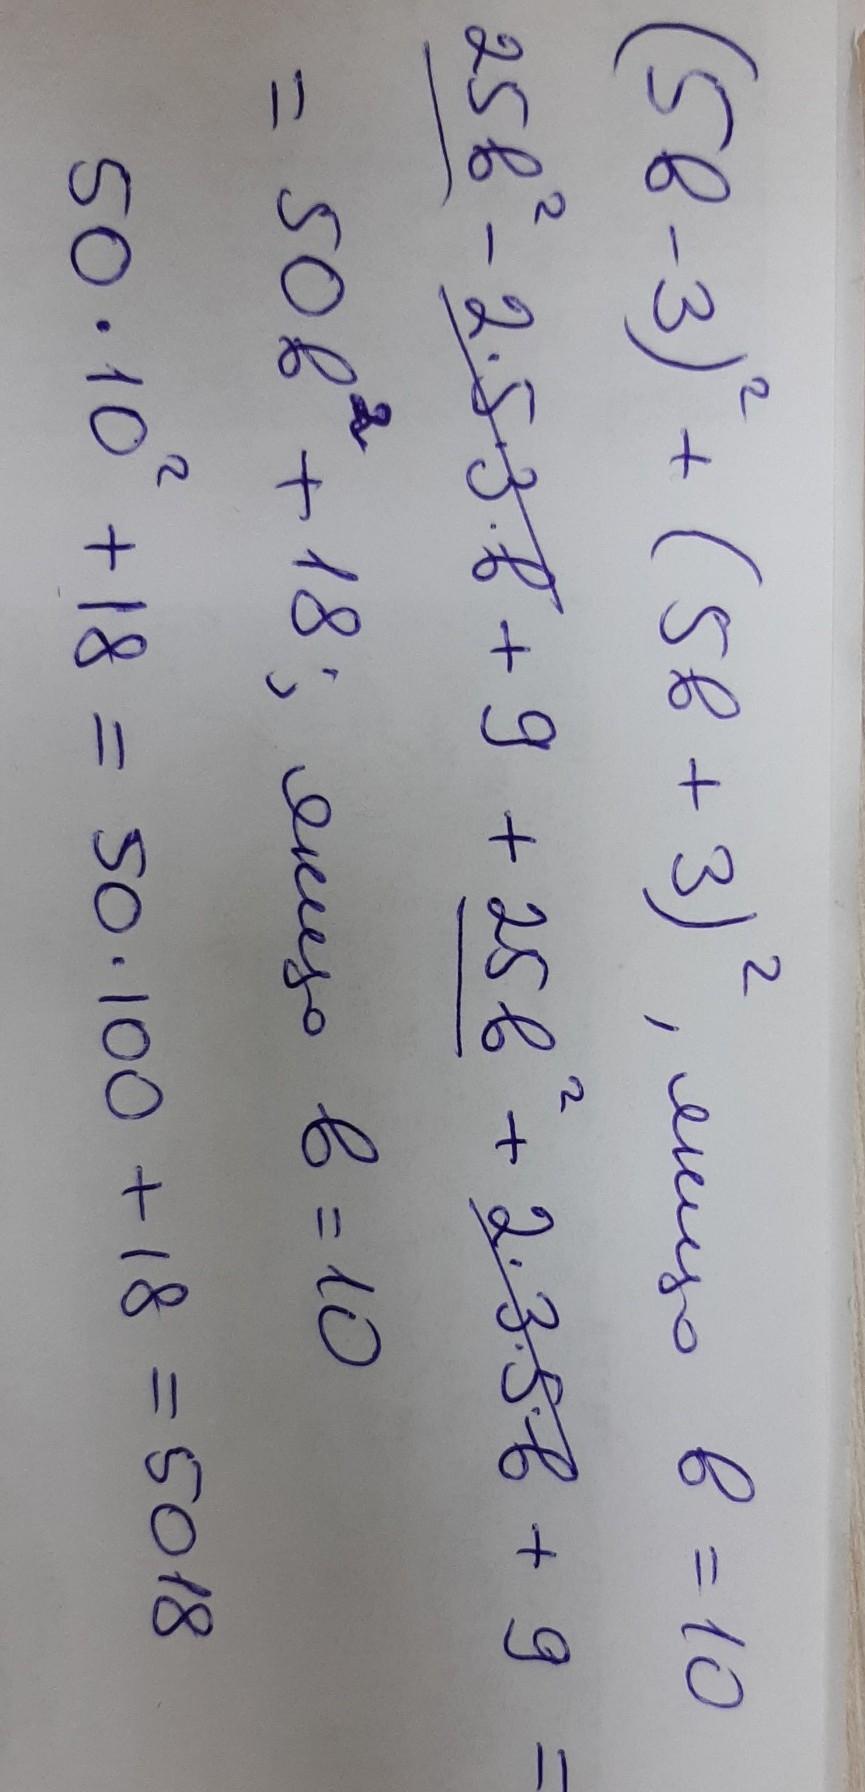 (5b - 3)² + (5b + 3)², якщо b = 10
25b² - 2·5·3·b + 9 + 25b² + 2·3·5·b + 9 =
= 50b² + 18; якщо b = 10
50·10² + 18 = 50·100 + 18 = 5018